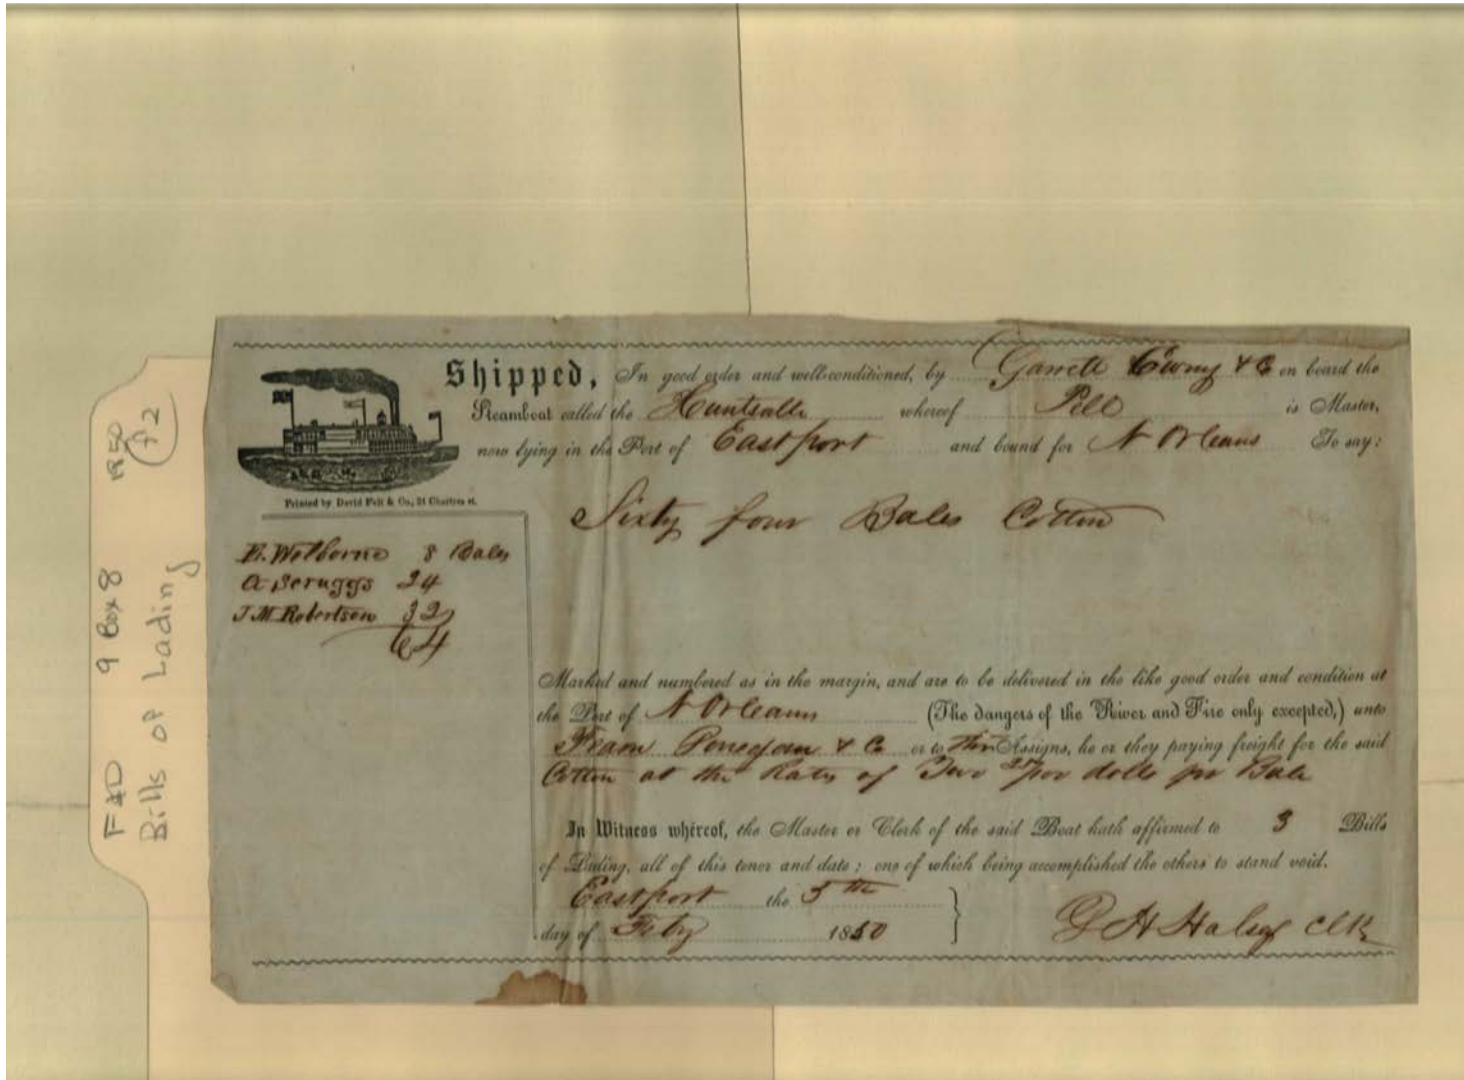 Shipped, In good order and well-conditioned, by Garrett & Co on board the
Steamboat called the Huntsville whereof Pell is Master,
now lying in the Port of Eastport and bound for N Orleans To say:
Printed by David Felt & Co., 24 Chartres st.
Sixty four Bales Cotton
B. Welborne 8 Bales
A Scruggs 24
J M Robertson 32
64
Marked and numbered as in the margin, and are to be delivered in the like good order and condition at
the Port of N Orleans (The dangers of the River and Fire only excepted,) unto
& Co or to Assigns, he or they paying freight for the said
Cotton at the Rates of Two dolls pr Bale
In Witness whereof, the Master or Clerk of the said Boat hath affirmed to 3 Bills
of Lading, all of this tenor and date; one of which being accomplished the others to stand void.
Eastport the 5th
day of Feby 1850
G H Halsey Clk
F&D 9 Box 8 1850
Bills of Lading f2